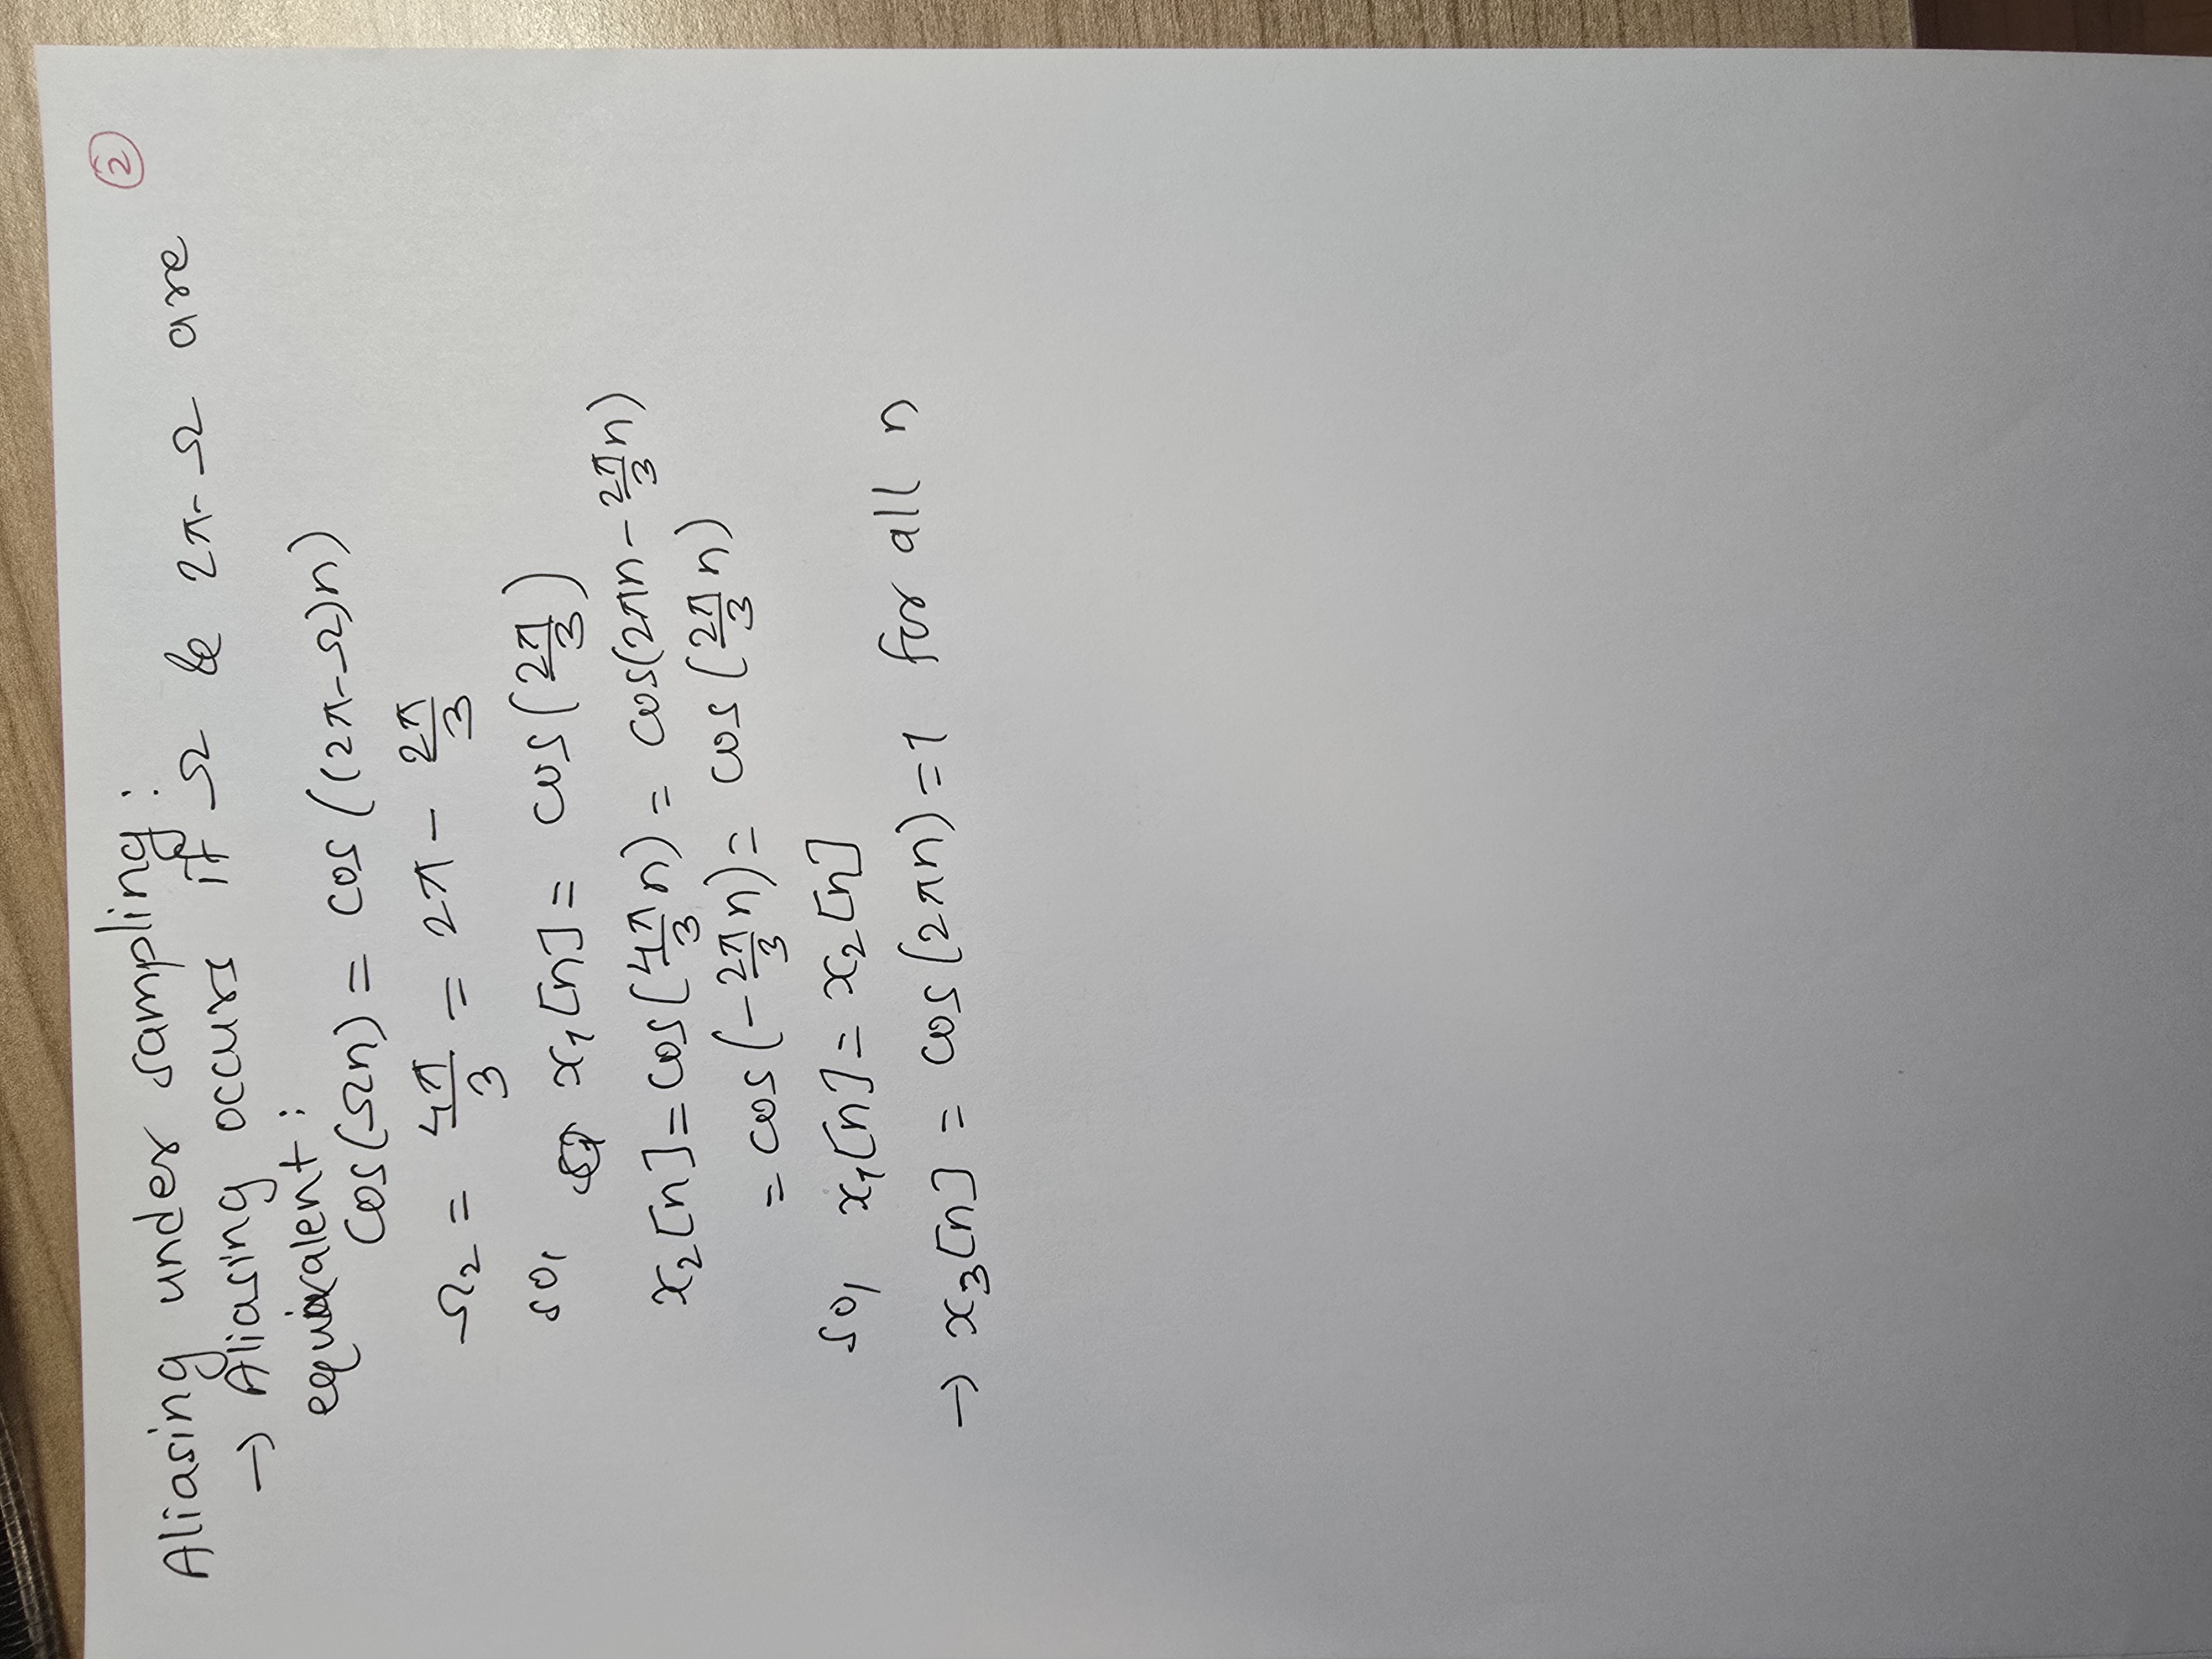 ②
Aliasing under sampling:
→ Aliasing occurs if Ω & 2π-Ω are
equivalent:
cos(Ωn) = cos((2π-Ω)n)
Ω₂ = 4π/3 = 2π - 2π/3
so, x₁[n] = cos(2π/3)
x₂[n] = cos(4π/3 n) = cos(2πn - 2π/3 n)
= cos(-2π/3 n) = cos(2π/3 n)
so, x₁[n] = x₂[n]
→ x₃[n] = cos(2πn) = 1 for all n